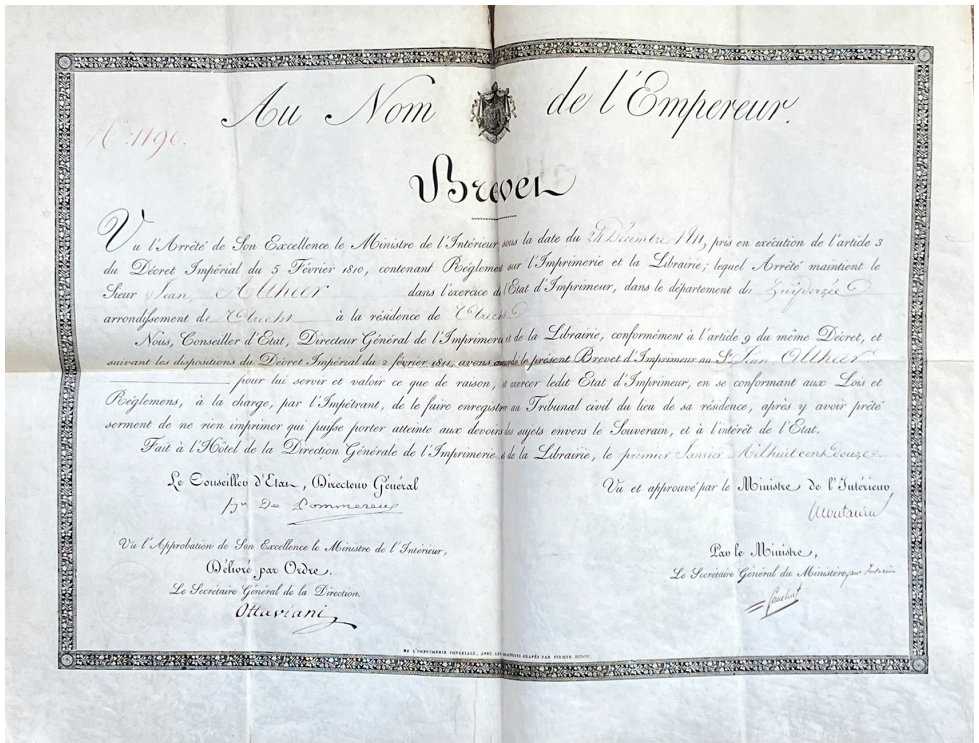 Au Nom de l'Empereur.
N.º 1190.
Brevet
Vu l'Arrêté de Son Excellence le Ministre de l'Intérieur sous la date du 24 Décembre 1811, pris en exécution de l'article 3
du Décret Impérial du 5 Février 1810, contenant Réglement sur l'Imprimerie et la Librairie; lequel Arrêté maintient le
Sieur Jean Altheer dans l'exercice de l'Etat d'Imprimeur, dans le département du Zuyderzée
arrondissement de Utrecht à la résidence de Utrecht
Nous, Conseiller d'Etat, Directeur Général de l'Imprimerie et de la Librairie, conformément à l'article 9 du même Décret, et
suivant les dispositions du Décret Impérial du 2 février 1811, avons accordé le présent Brevet d'Imprimeur au S.r Jean Altheer
pour lui servir et valoir ce que de raison, et exercer ledit Etat d'Imprimeur, en se conformant aux Lois et
Réglemens, à la charge, par l'Impétrant, de le faire enregistrer au Tribunal civil du lieu de sa résidence, après y avoir prêté
serment de ne rien imprimer qui puisse porter atteinte aux devoirs des sujets envers le Souverain, et à l'intérêt de l'Etat.
Fait à l'Hôtel de la Direction Générale de l'Imprimerie et de la Librairie, le premier Janvier Mil huit cent douze
Le Conseiller d'Etat, Directeur Général
De Pommereul
Vu et approuvé par le Ministre de l'Intérieur
Montalivet
Vu l'Approbation de Son Excellence le Ministre de l'Intérieur,
Délivré par Ordre.
Le Secrétaire Général de la Direction.
Ottaviani
Par le Ministre,
Le Secrétaire Général du Ministère par Interim
DE L'IMPRIMERIE IMPÉRIALE, AVEC LES MATRICES GRAVÉES PAR FIRMIN DIDOT.